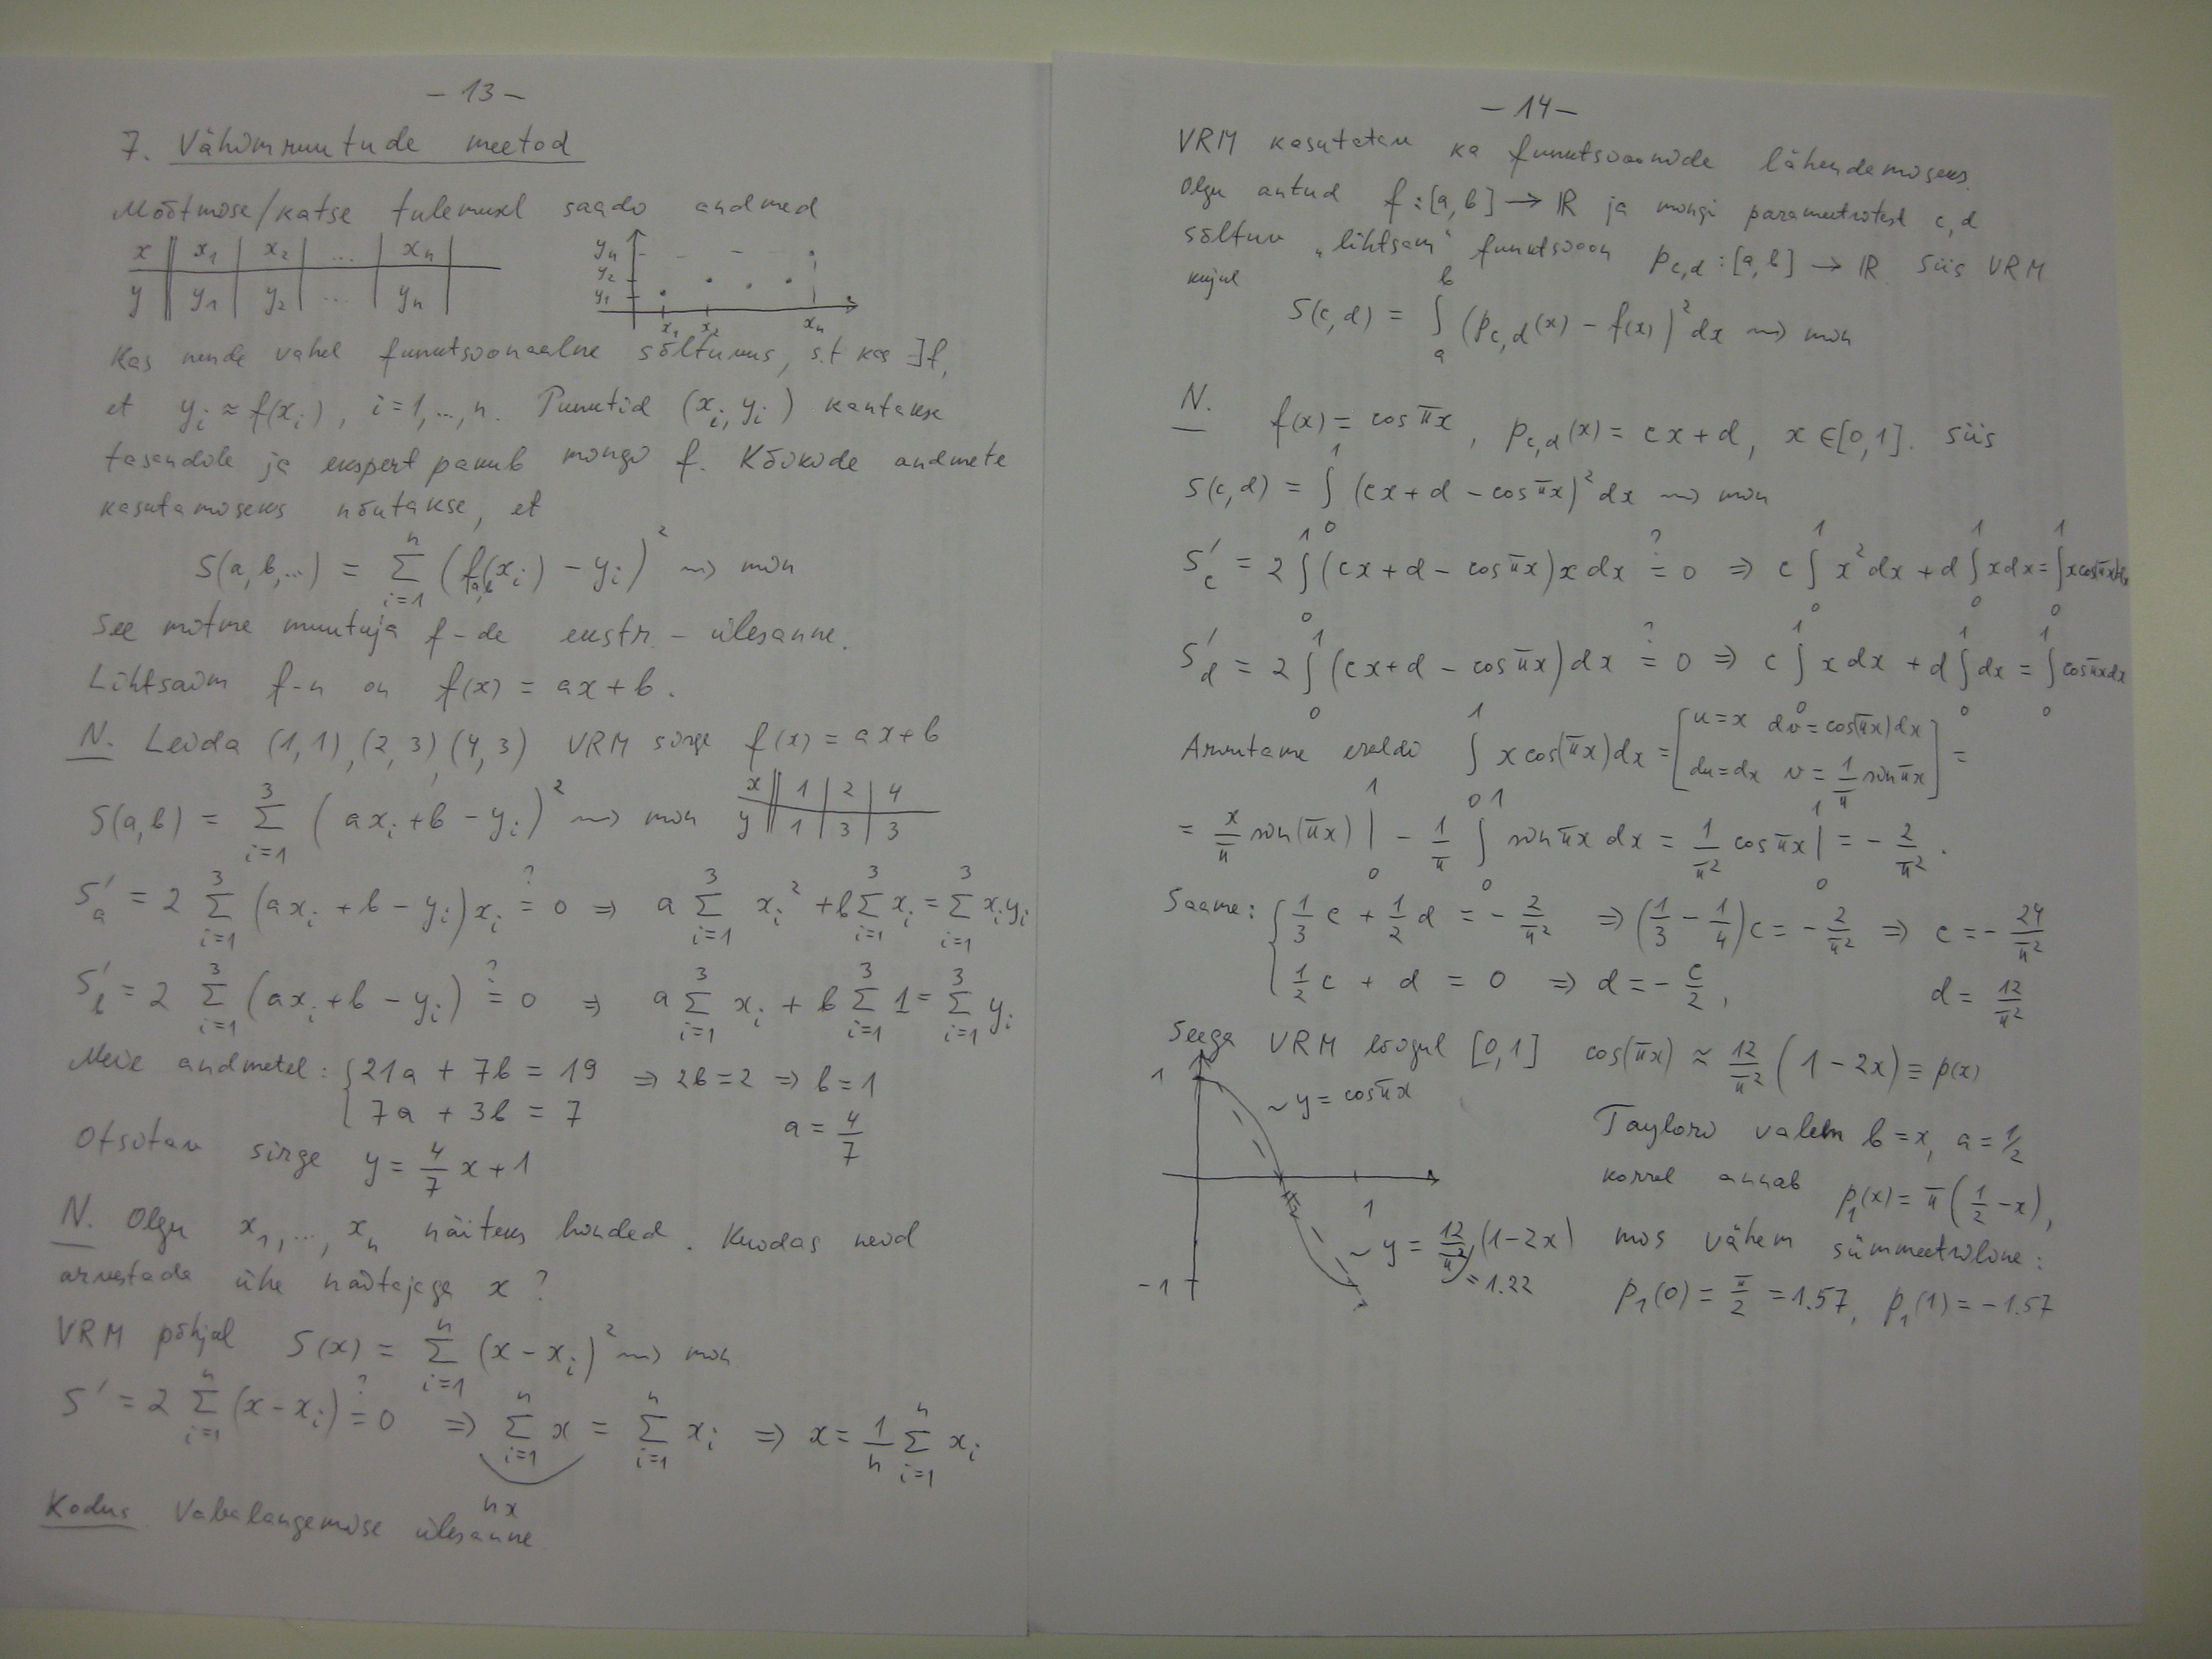 - 13 -
7. Vähimruutude meetod
Mõõtmise/katse tulemusel saadi andmed
x | x₁ | x₂ | ... | xₙ
y | y₁ | y₂ | ... | yₙ
yₙ
y₂
y₁
x₁ x₂ xₙ
Kas nende vahel funktsionaalne sõltuvus, s.t kas ∃f,
et yᵢ ≈ f(xᵢ), i=1,...,n. Punktid (xᵢ, yᵢ) kantakse
tasandile ja ekspert pakub mingi f. Kõikide andmete
kasutamiseks nõutakse, et
S(a,b,...) = Σᵢ₌₁ⁿ (f_{a,b}(xᵢ) - yᵢ)² ⇝ min
See mitme muutuja f-ni ekstr-ülesanne.
Lihtsaim f-n on f(x) = ax+b.
N. Leida (1,1), (2,3), (4,3) VRM sirge f(x) = ax+b
S(a,b) = Σᵢ₌₁³ (axᵢ+b-yᵢ)² ⇝ min
x | 1 | 2 | 4
y | 1 | 3 | 3
S'ₐ = 2 Σᵢ₌₁³ (axᵢ+b-yᵢ)xᵢ =? 0 ⇒ a Σᵢ₌₁³ xᵢ² + b Σᵢ₌₁³ xᵢ = Σᵢ₌₁³ xᵢyᵢ
S'_b = 2 Σᵢ₌₁³ (axᵢ+b-yᵢ) =? 0 ⇒ a Σᵢ₌₁³ xᵢ + b Σᵢ₌₁³ 1 = Σᵢ₌₁³ yᵢ
Meie andmetel: { 21a + 7b = 19 ⇒ 2b=2 ⇒ b=1
7a + 3b = 7 a = 4/7
Otsitav sirge y = 4/7 x + 1
N. Olgu x₁,...,xₙ näiteks hinded. Kuidas neid
arvestada ühe näitajaga x?
VRM põhjal S(x) = Σᵢ₌₁ⁿ (x-xᵢ)² ⇝ min
S' = 2 Σᵢ₌₁ⁿ (x-xᵢ) =? 0 ⇒ Σᵢ₌₁ⁿ x = Σᵢ₌₁ⁿ xᵢ ⇒ x = 1/n Σᵢ₌₁ⁿ xᵢ
nx
Kodus Vabalangemise ülesanne
- 14 -
VRM kasutatav ka funktsioonide lähendamiseks.
Olgu antud f:[a,b] → ℝ ja mingi parameetritest c,d
sõltuv „lihtsam" funktsioon p_{c,d}:[a,b] → ℝ siis VRM
kujul
S(c,d) = ∫ₐᵇ (p_{c,d}(x) - f(x))² dx ⇝ min
N. f(x) = cos πx, p_{c,d}(x) = cx+d, x∈[0,1]. Siis
S(c,d) = ∫₀¹ (cx+d-cos πx)² dx ⇝ min
S'_c = 2 ∫₀¹ (cx+d-cos πx) x dx =? 0 ⇒ c ∫₀¹ x² dx + d ∫₀¹ x dx = ∫₀¹ x cos πx dx
S'_d = 2 ∫₀¹ (cx+d-cos πx) dx =? 0 ⇒ c ∫₀¹ x dx + d ∫₀¹ dx = ∫₀¹ cos πx dx
Arvutame eraldi ∫₀¹ x cos(πx) dx = [u=x dv=cos(πx)dx
du=dx v=1/π sin πx] =
= x/π sin(πx) |₀¹ - 1/π ∫₀¹ sin πx dx = 1/π² cos πx |₀¹ = - 2/π².
Saame: { 1/3 c + 1/2 d = - 2/π² ⇒ (1/3 - 1/4)c = - 2/π² ⇒ c = - 24/π²
1/2 c + d = 0 ⇒ d = - c/2, d = 12/π²
Seega VRM lõigul [0,1] cos(πx) ≈ 12/π² (1-2x) = p(x)
1
~ y = cos πx
Taylori valem b=x, a=1/2
korral annab p₁(x) = π(1/2 - x),
1
~ y = 12/π² (1-2x)
= 1.22
mis vähem sümmeetriline:
-1
p₁(0) = π/2 = 1.57, p₁(1) = -1.57